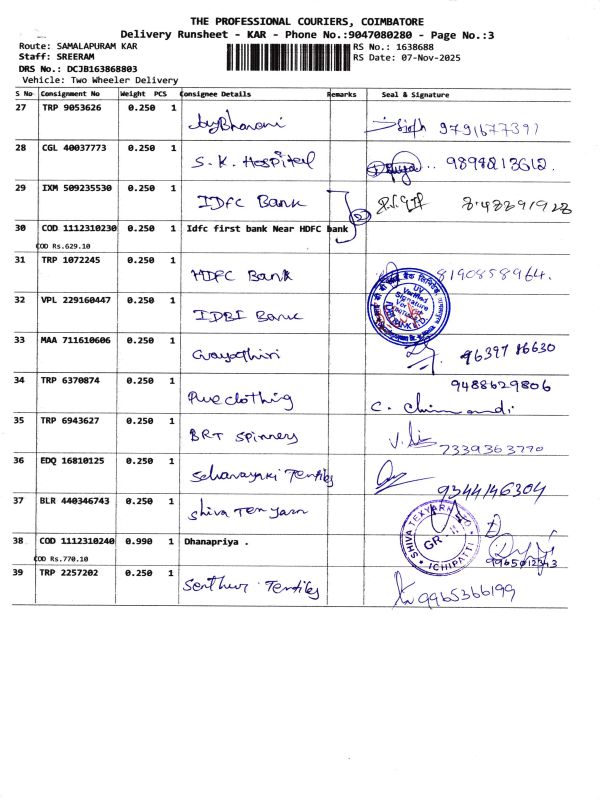 THE PROFESSIONAL COURIERS, COIMBATORE
Delivery Runsheet - KAR - Phone No.:9047080280 - Page No.:3
Route: SAMALAPURAM KAR RS No.: 1638688
Staff: SREERAM RS Date: 07-Nov-2025
DRS No.: DCJB163868803
Vehicle: Two Wheeler Delivery
S No Consignment No Weight PCS Consignee Details Remarks Seal & Signature
27 TRP 9053626 0.250 1
9791677391
28 CGL 40037773 0.250 1
S.K. Hospital
29 IXM 509235530 0.250 1
IDFC Bank
2
30 COD 1112310230 0.250 1 Idfc first bank Near HDFC bank
COD Rs.629.10
31 TRP 1072245 0.250 1
HDFC Bank 8190858964.
32 VPL 229160447 0.250 1
IDBI Bank
UV Verified Signature
33 MAA 711610606 0.250 1
Gayathiri
34 TRP 6370874 0.250 1 9488629806
Pure clothing
35 TRP 6943627 0.250 1
BRT Spinners 7339363770
36 EDQ 16810125 0.250 1
Textiles 9344146304
37 BLR 440346743 0.250 1
Shiva Tex yarn
SHIVA TEXYARN
ICHIPATTI
38 COD 1112310240 0.990 1 Dhanapriya .
COD Rs.770.10 9965012343
39 TRP 2257202 0.250 1
Senthur Textiles 9965366199